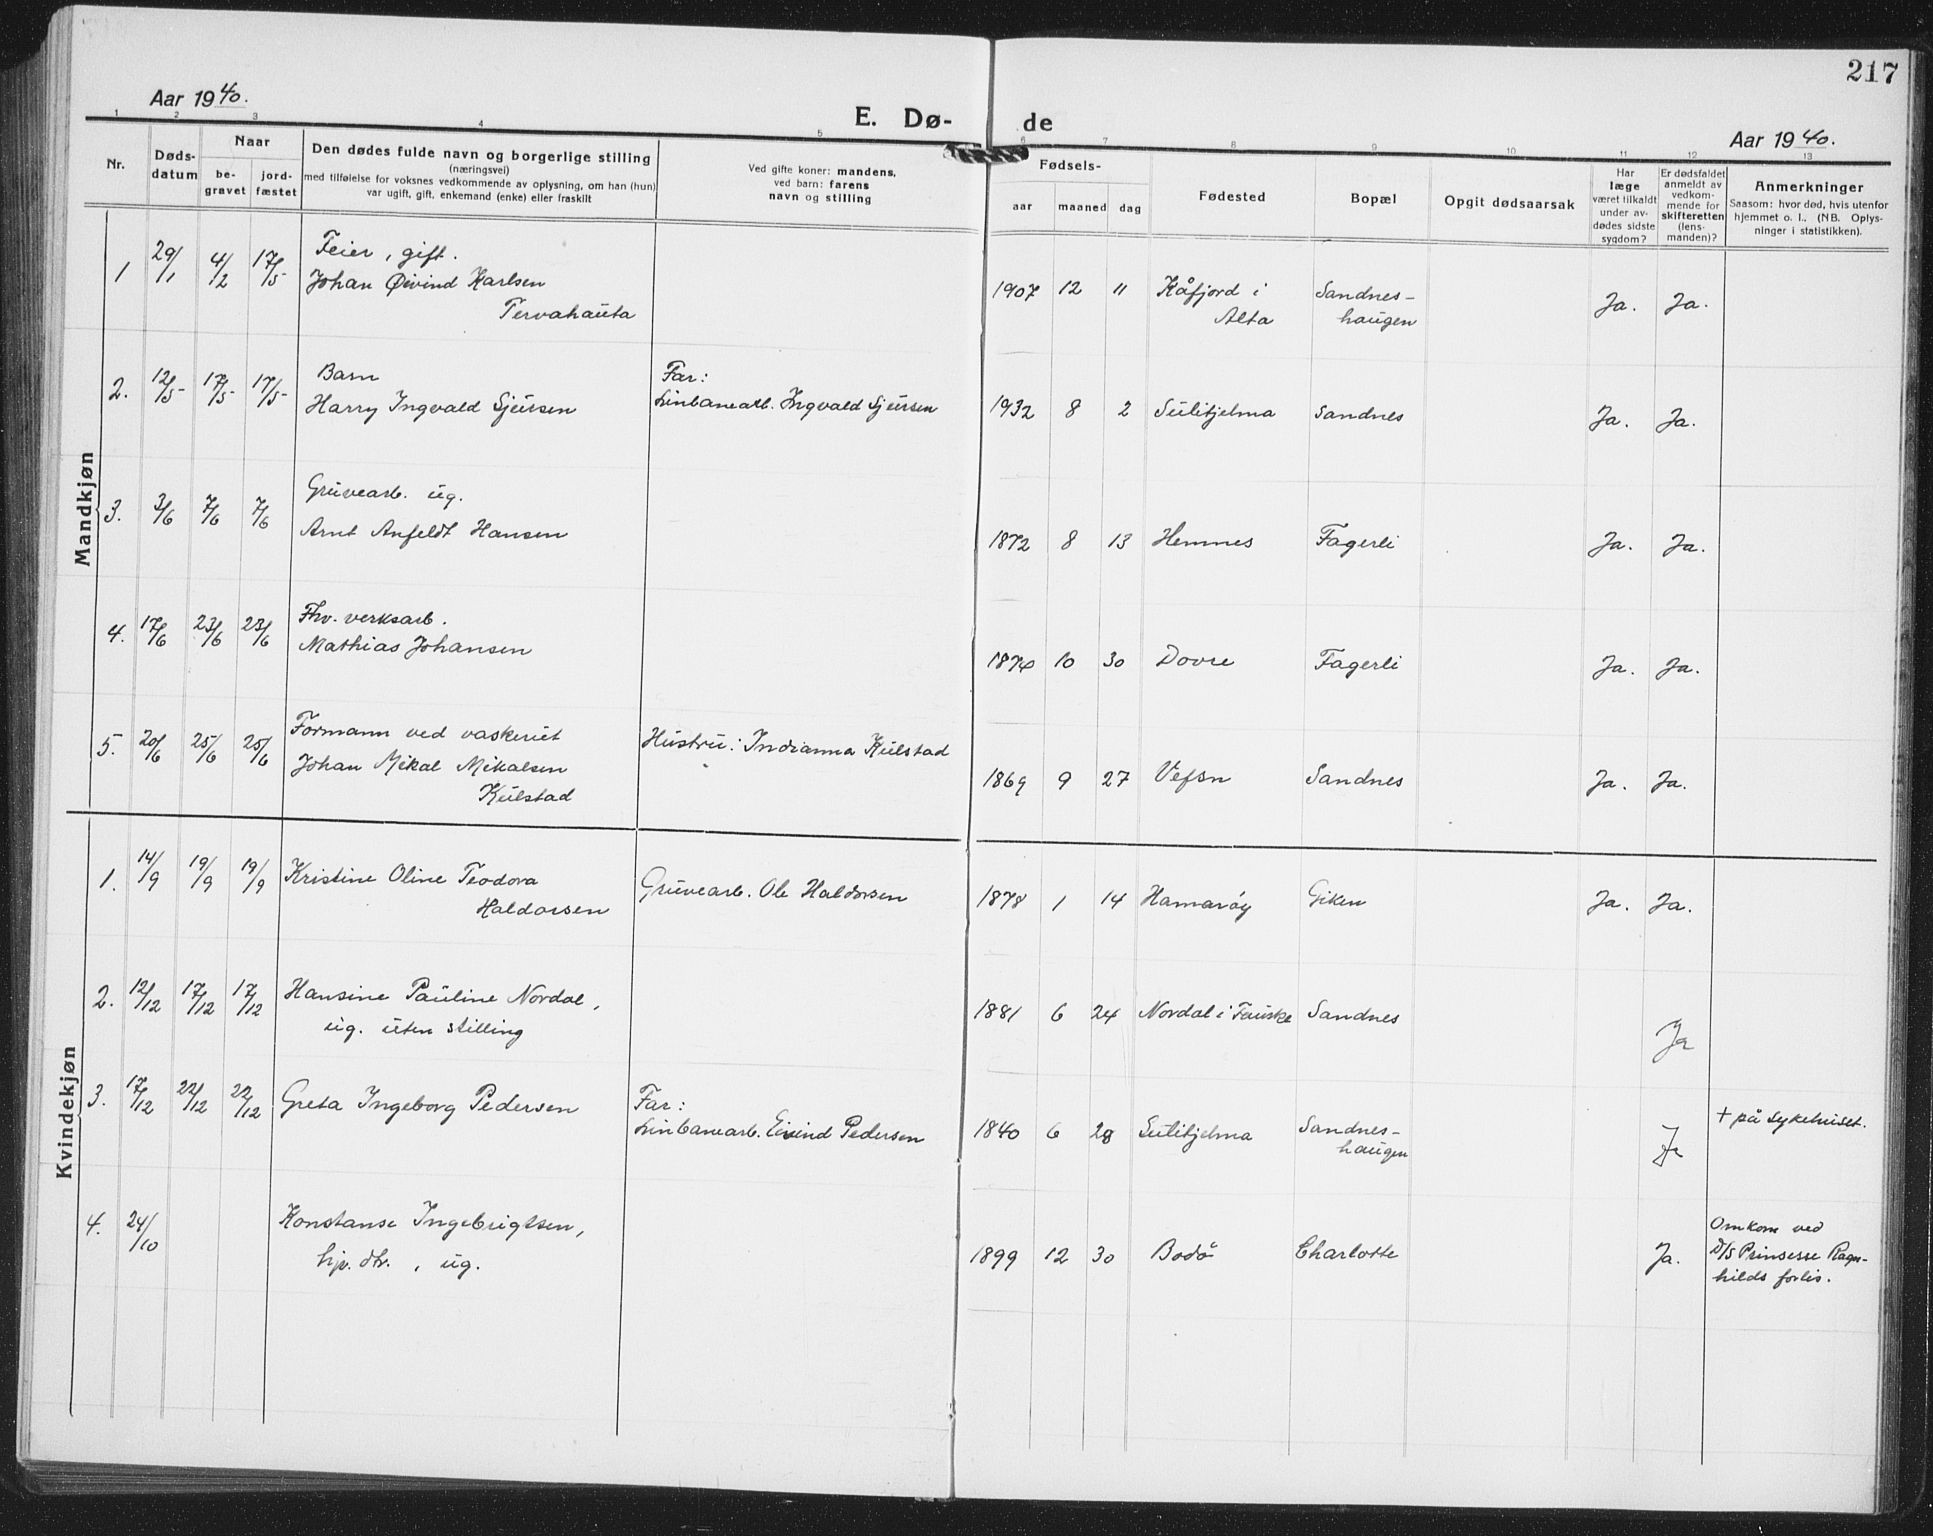 217
Aar 1940.
E. Dø-
de
Aar 1940.
1 2 3 4 5 6 7 8 9 10 11 12 13
Nr.
Døds-
datum
Naar
be-
gravet
jord-
fæstet
Den dødes fulde navn og borgerlige stilling
(næringsvei)
med tilføielse for voksnes vedkommende av oplysning, om han (hun)
var ugift, gift, enkemand (enke) eller fraskilt
Ved gifte koner: mandens,
ved barn: farens
navn og stilling
Fødsels-
aar maaned dag
Fødested
Bopæl
Opgit dødsaarsak
Har
læge
været tilkaldt
under av-
dødes sidste
sygdom?
Er dødsfaldet
anmeldt av
vedkom-
mende for
skifteretten
(lens-
manden)?
Anmerkninger
Saasom: hvor død, hvis utenfor
hjemmet o. l.. (NB. Oplys-
ninger i statistikken).
Mandkjøn
1 29/1 4/2 17/5 Feier, gift.
Johan Øivind Karlsen
Tervahauta
1907 12 11 Kåfjord i
Alta
Sandnes-
haugen
Ja. Ja.
2. 12/5 17/5 17/5 Barn
Harry Ingvald Sjursen
Far:
Linbanearb. Ingvald Sjursen
1932 8 2 Sulitjelma Sandnes Ja. Ja.
3. 3/6 7/6 7/6 Gruvearb. ug.
Arnt Anfeldt Hansen
1872 8 13 Hemnes Fagerli Ja. Ja.
4. 17/6 23/6 23/6 Fhv. verksarb.
Mathias Johansen
1874 10 30 Dovre Fagerli Ja. Ja.
5. 20/6 25/6 25/6 Formann ved vaskeriet
Johan Mikal Mikalsen
Kulstad
Hustru: Indianna Kulstad
1869 9 27 Vefsn Sandnes Ja. Ja.
Kvindekjøn
1. 14/9 19/9 19/9 Kristine Oline Teodora
Haldorsen
Gruvearb. Ole Haldorsen
1878 1 14 Hamarøy Giken Ja. Ja.
2. 12/12 17/12 17/12 Hansine Pauline Nordal,
ug. uten stilling
1881 6 24 Nordal i Fauske Sandnes Ja
3. 17/12 22/12 22/12 Greta Ingeborg Pedersen
Far:
Linbanearb. Eivind Pedersen
1840 6 28 Sulitjelma Sandnes-
haugen
Ja
+ på sykehuset.
4. 24/10 Konstanse Ingebrigtsen,
hjv. dtr., ug.
1899 12 30 Bodø Charlotte Ja.
Omkom ved
D/S Prinsesse Ragn-
hilds forlis.